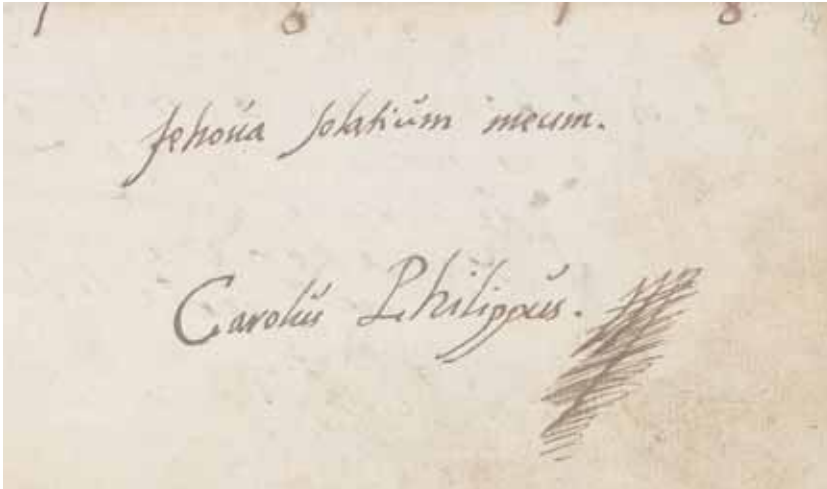 1 6 1 8.
Jehoua solatium meum.
Carolus Philippus.